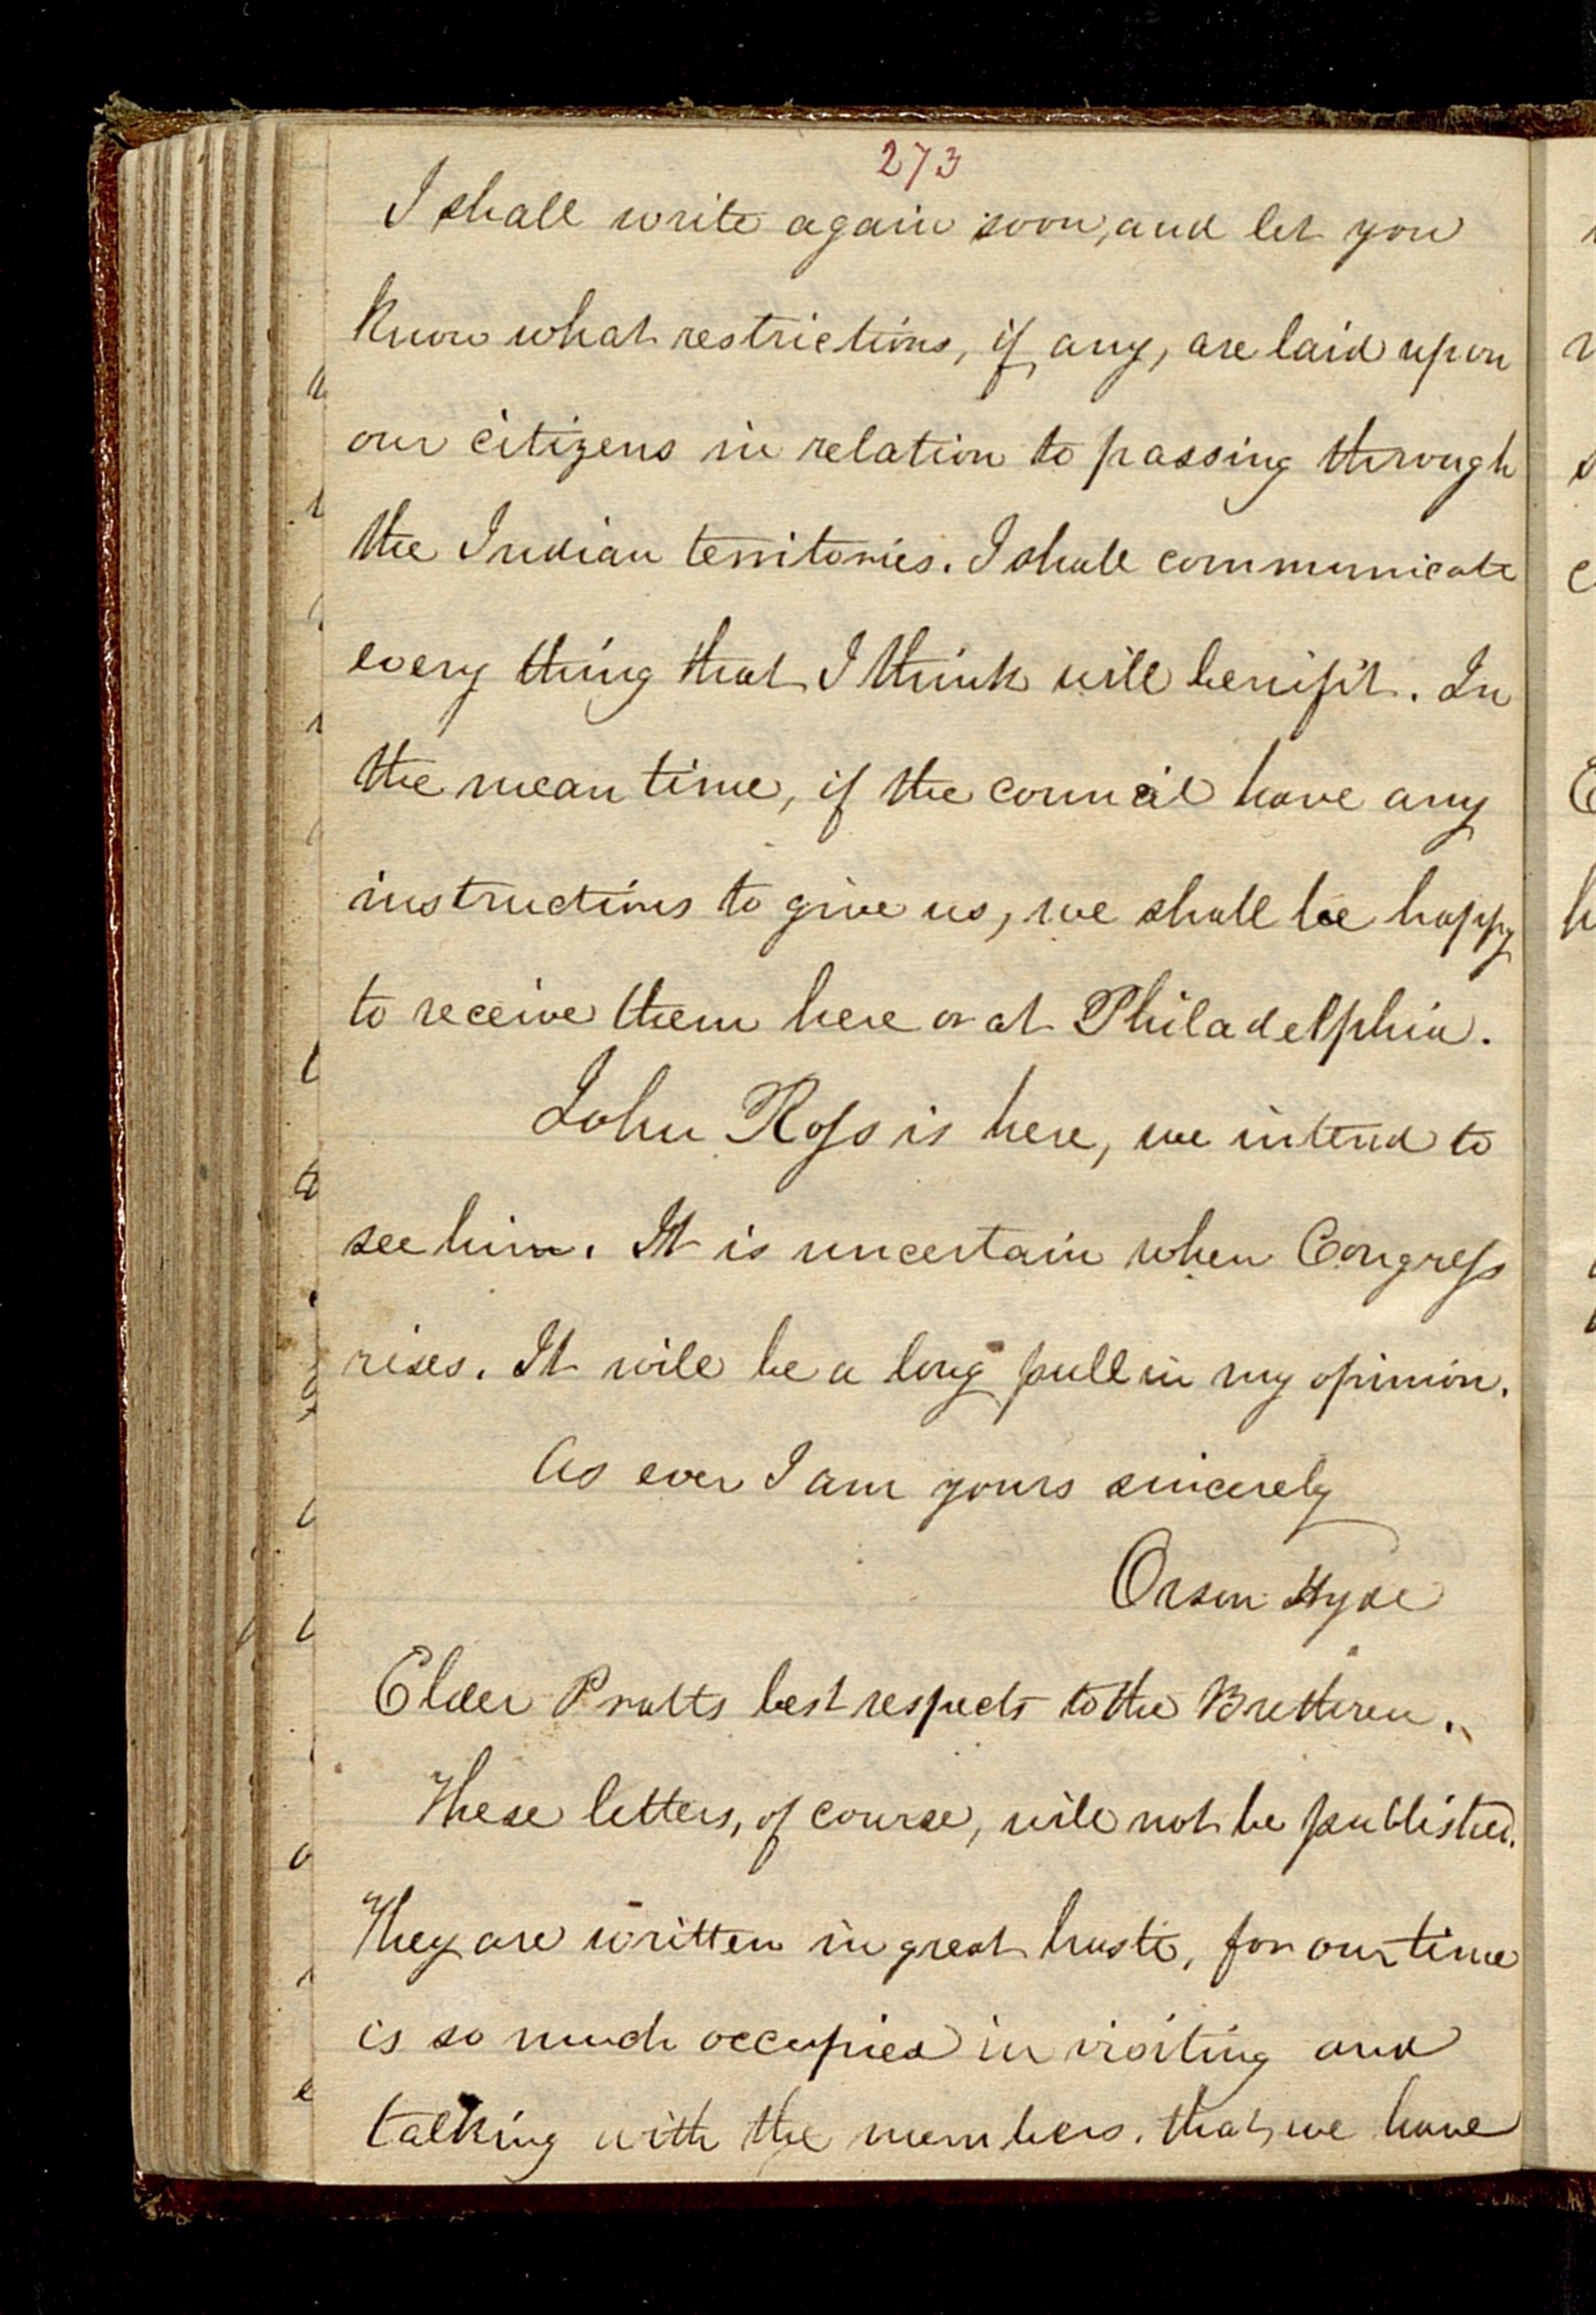 273
I shall write again soon, and let you
know what restrictions, if any, are laid upon
our citizens in relation to passing through
the Indian territories. I shall communicate
every thing that I think will benifit. In
the mean time, if the council have any
instructions to give us, we shall be happy
to receive them here or at Philadelphia.
John Ross is here, we intend to
see him. It is uncertain when Congress
rises. It will be a long pull in my opinion.
As ever I am yours sincerely
Orson Hyde
Elder Pratts best respects to the Brethren.
These letters, of course, will not be published.
They are written in great haste, for our time
is so much occupied in visiting and
talking with the members, that we have